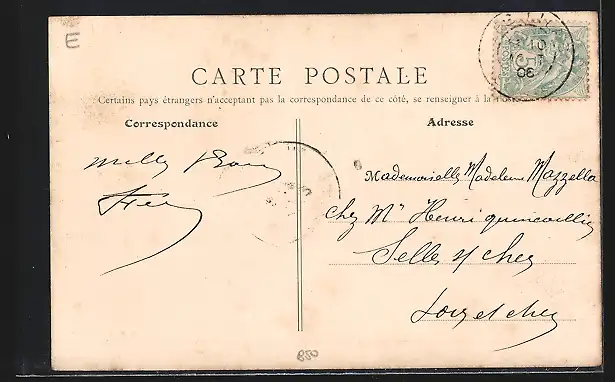 E
CARTE POSTALE
Certains pays étrangers n'acceptant pas la correspondance de ce côté, se renseigner à la
Correspondance
Adresse
mille
Mademoiselle Madeleine Mazzella
chez Mr Henri
Selles s/ cher
Loir et cher
820